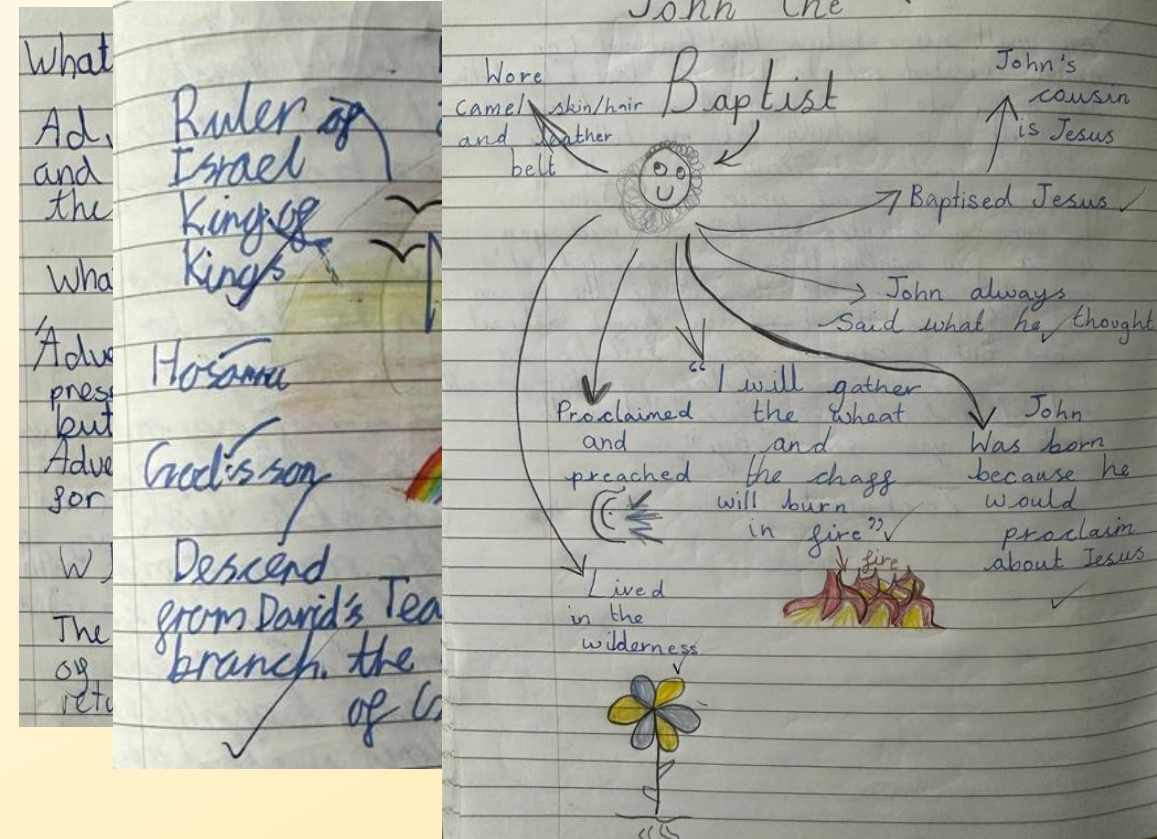 What
Ad
and
the
Wha
'Adve
pres
but
Adve
for
W
The
of
retu
Ruler of
Israel
King of
Kings
Hosanna
God's son
Descend
from David's Tea
branch. the
of
John the
Baptist
Wore
camel skin/hair
and leather
belt
John's
cousin
is Jesus
Baptised Jesus
John always
Said what he thought
Proclaimed
and
preached
"I will gather
the wheat
and
the chaff
will burn
in fire"
fire
John
Was born
because he
would
proclaim
about Jesus
Lived
in the
wilderness